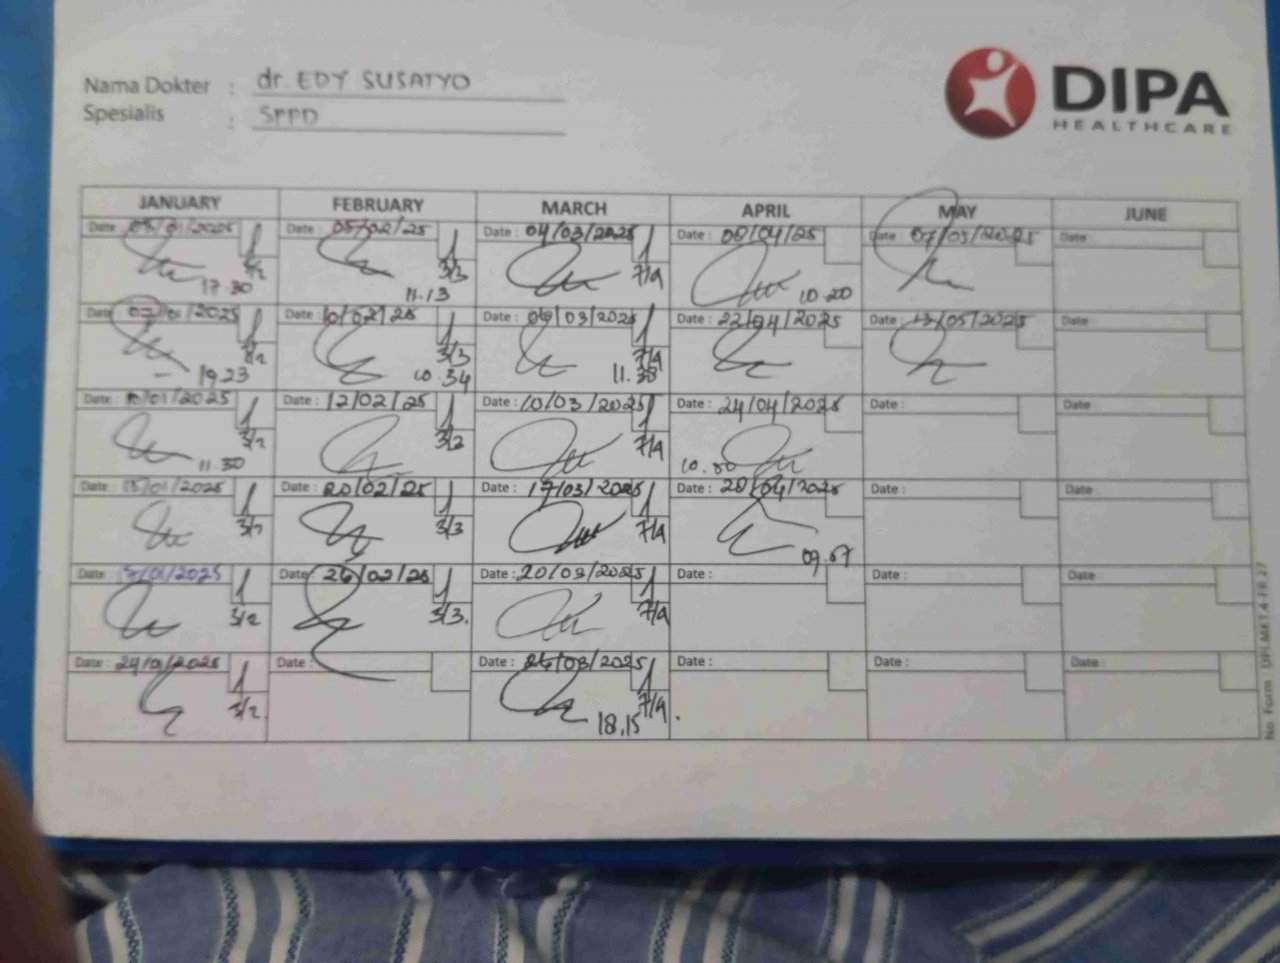 Nama Dokter : dr. EDY SUSATYO
Spesialis : SPPD
DIPA
HEALTHCARE
JANUARY FEBRUARY MARCH APRIL MAY JUNE
Date : /01/2025 Date : 05/02/25 Date : 04/03/2025 Date : 08/04/25 Date : 07/05/2025 Date :
3/2 3/3 7/4
17.30 11.13 10.20
Date : 07/01/2025 Date : 10/02/25 Date : /03/2025 Date : 22/04/2025 Date : 13/05/2025 Date :
3/2 3/3 7/4
19.23 10.34 11.38
Date : 10/01/2025 Date : 12/02/25 Date : 10/03/2025 Date : 24/04/2025 Date : Date :
3/2 3/3 7/4
11.30
Date : /01/2025 Date : 20/02/25 Date : 17/03/2025 Date : 28/04/2025 Date : Date :
3/2 3/3 7/4
Date : /01/2025 Date : 26/02/25 Date : 20/03/2025 Date : Date : Date :
3/2 3/3. 7/4
Date : 24/01/2025 Date : Date : 26/03/2025 Date : Date : Date :
3/2. 7/4.
18.15
No. Form DPI.MKT.4-FR.27